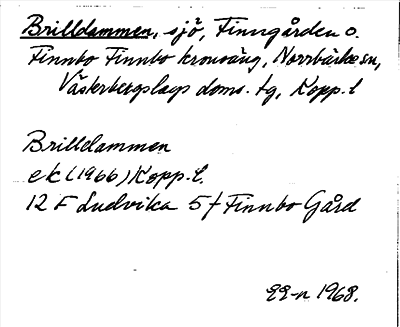 Brilldammen, sjö, Finngården o.
Finnbo Finnbo kronoäng, Norrbärke sn,
Västerbergslags doms. tg, Kopp. l
Brilldammen
ek (1966) Kopp. l.
12 F Ludvika 5 f Finnbo Gård
1968.